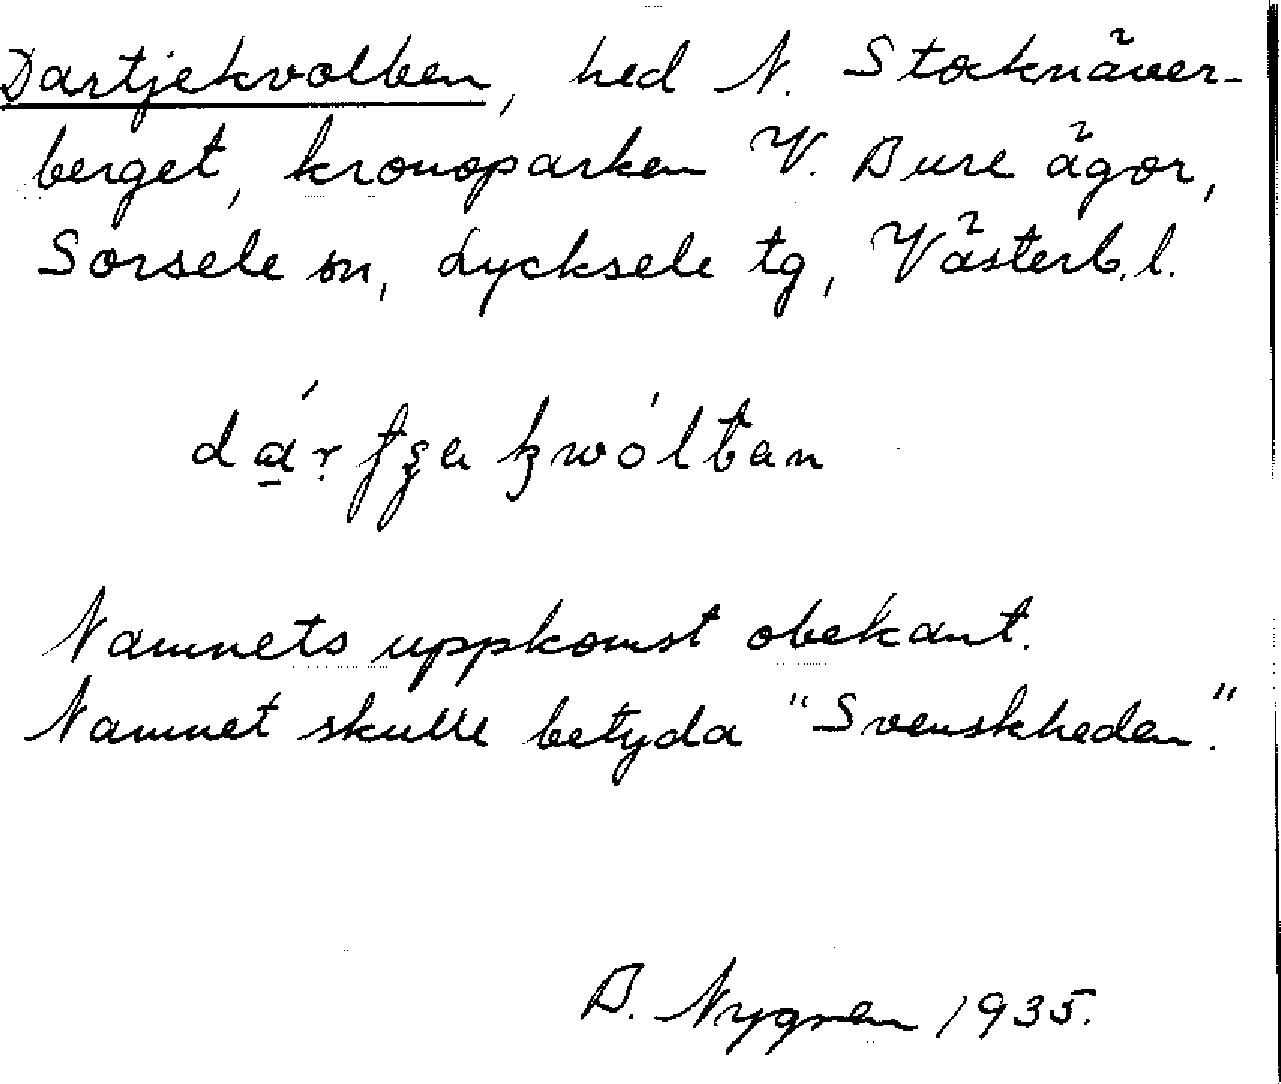 Dartjekvolben, hed N. Stocknäver-
berget, kronoparken V. Bure ägor,
Sorsele sn, Lycksele tg, Västerb. l.
Namnets uppkomst obekant.
Namnet skulle betyda "Svenskheden".
B. Nygren 1935.